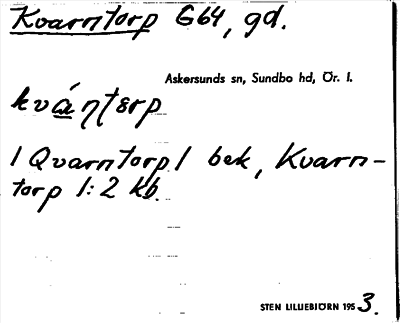 Kvarntorp G64, gd.
Askersunds sn, Sundbo hd, Ör. l.
kvá̱ṇtərp
/ Qvarntorp / bek, Kvarn-
torp 1:2 kb.
STEN LILLIEBJÖRN 1953.